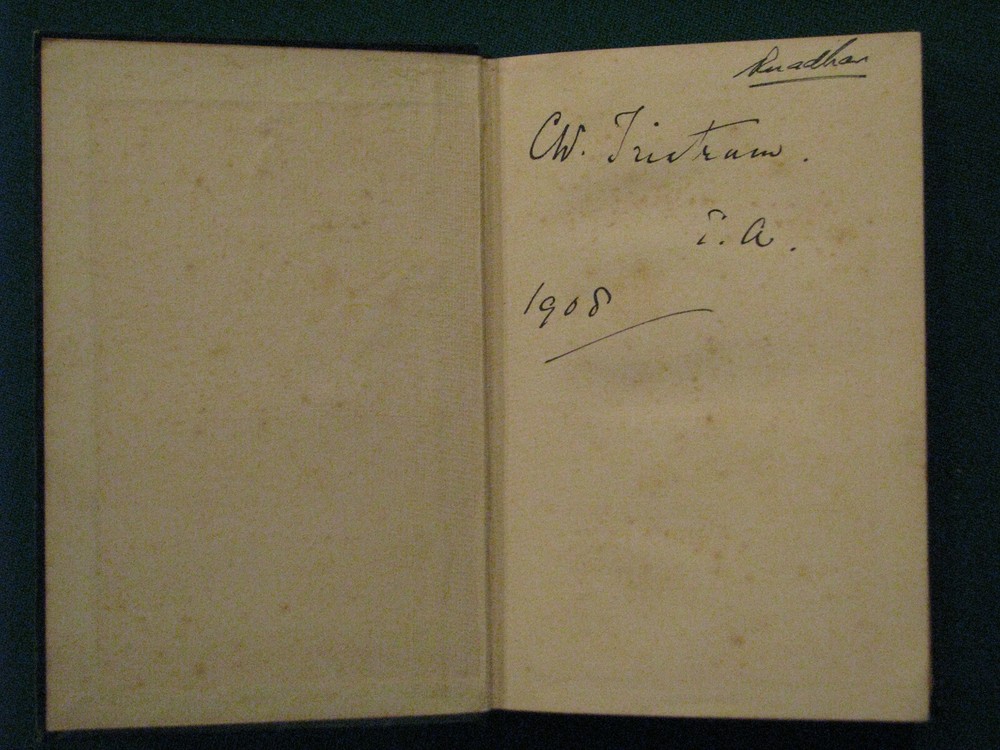 Ruadhan
CW. Tristram.
T. A.
1908